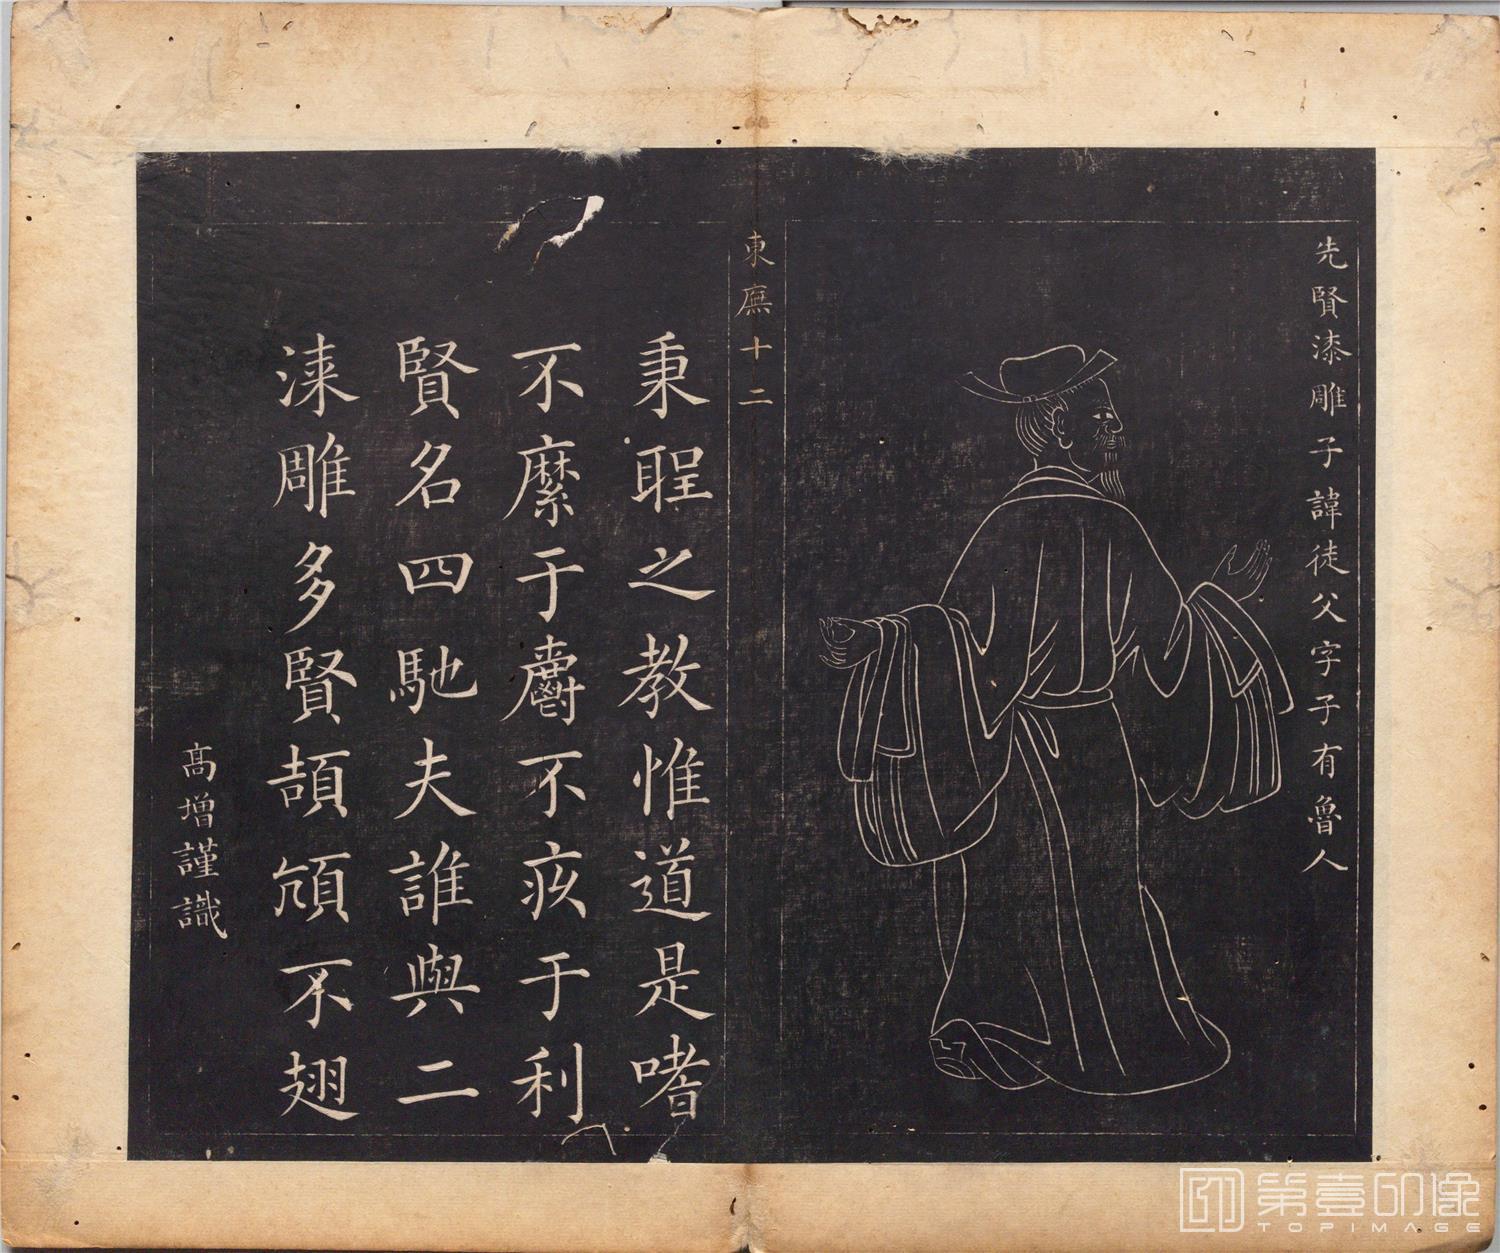 先賢漆雕子諱徒父字子有魯人
東廡十二
秉聖之教惟道是嗜
不縻于爵不疚于利
賢名四馳夫誰與二
漆雕多賢頡頏不翅
高增謹識
第壹印像
TOPIMAGE